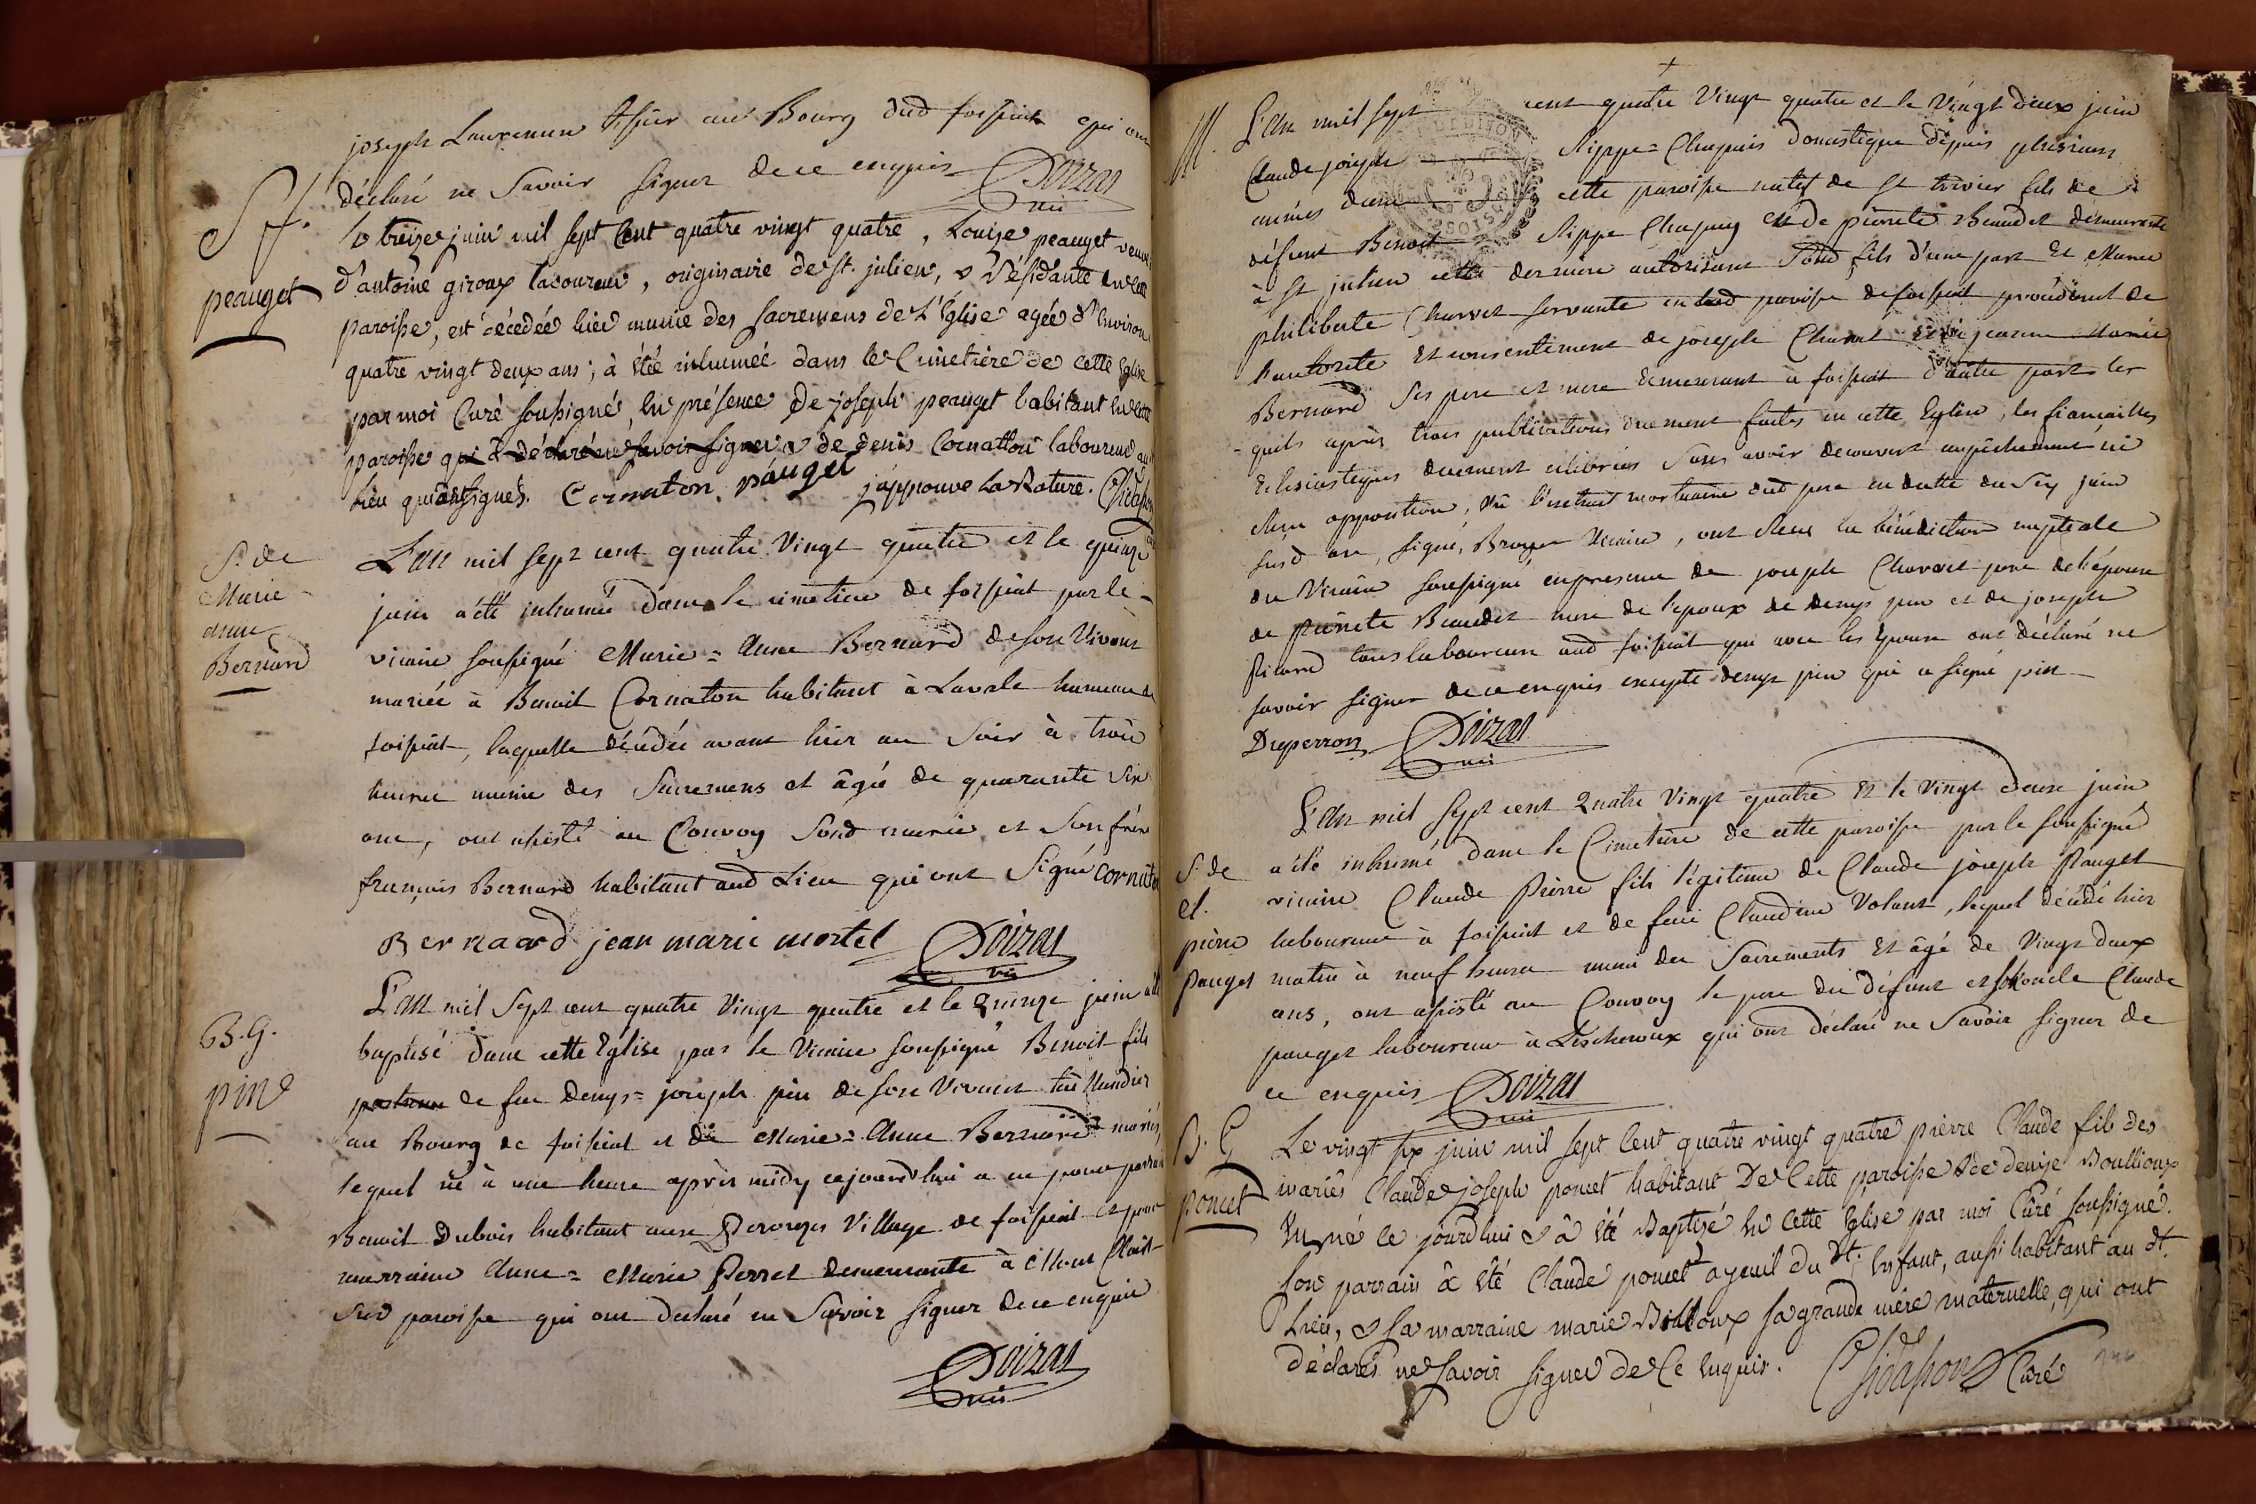 joseph Laurencin Tissier au Bourg dud foissiat qui ont
déclaré ne Savoir Signer de ce enquis Doizat
vic
Sf.
peauget
Le treize juin mil sept Cent quatre vingt quatre, Louise peauget veuve
d'antoine giroux laboureur, originaire de st. julien, & Résidante en cette
paroisse, est décédée hier munie des sacremens de L'Eglise agée d'Environ
quatre vingt deux ans, à étée inhumée dans le Cimetière de cette Eglise
par moi Curé soussigné, en présence de joseph peauget habitant en cette
paroisse qui a déclaré ne savoir signer & de denis Cornatton laboureur au
lieu qui ont signés. Cornaton pauget j'approuve La Rature.
S. de
Marie
anne
Bernard
L'an mil sept cent quatre Vingt quatre et le quinze
juin a été inhumée dans le cimetiere de foissiat par le
vicaire soussigné Marie = Anne Bernard de son Vivant
mariée à Benoit Cornaton habitant à Lavale hameau de
foissiat, laquelle décédée avant hier au Soir à trois
heures munie des Sacremens et âgée de quarante Six
ans, ont assisté au Convoy Sond marié et Son frere
françois Bernard habitant aud Lieu qui ont Signé Cornaton
Bernaard jean marie mortel Doizat
vic
B.G.
pin
L'an mil Sept cent quatre Vingt quatre et le Quinze juin a été
baptisé dans cette Eglise par le Vicaire Soussigné Benoit fils
de feu denys = joseph pin de son Vivant
au Bourg de foissiat et de Marie = Anne Bernard mariés,
lequel né à une heure après midy cejourd'hui a eu pour parrain
Benoit Dubois habitant aux Perouzes Village de foissiat et pour
marraine Anne = Marie Perret demeurante à Mont
Sud paroisse qui ont déclaré ne Savoir Signer de ce enquis
Doizat
vic
M.
L'an mil sept cent quatre Vingt quatre et le Vingt deux juin
Claude joseph Rippe = Chapuis domestique depuis plusieurs
années dans cette paroisse natif de St trivier fils de
défunt Benoit Rippe Chapuis et de pierrete Beaudet demeurante
à St julien cette derniere autorisant Sond fils d'une part Et Marie
philiberte Charvet servante en lad paroisse de foissiat procédant de
l'autorité Et consentement de joseph Charvet et de jeanne Marie
Bernard Ses pere et mere demeurant à foissiat d'autre part les
quels après trois publications duement faites en cette Eglise, les fiançailles
Eclesiastiques duement célébrées Sans avoir découvert empêchement ni
Reçu opposition, Vû l'extrait mortuaire dud pere en datte du Six juin
susd an, signé, Broyer Vicaire, ont Reçu la bénédiction nuptiale
du Vicaire soussigné en presence de joseph Charvet pere de l'épouse
de pierrete Beaudet mere de l'epoux de denys pin et de joseph
Picard tous laboureurs aud foissiat qui avec les Epoux ont déclaré ne
savoir signer de ce enquis excepté denys pin qui a signé pin
Duperron Doizat
vic
S. de
Cl.
pierre
Pauget
L'an mil Sept cent Quatre Vingt quatre Et le Vingt Deux juin
a été inhumé dans le Cimetiere de cette paroisse par le soussigné
vicaire Claude Pierre fils légitime de Claude joseph Pauget
laboureur à foissiat et de feue Claudine Volant, lequel décédé hier
matin à neuf heures muni des Sacrements Et âgé de Vingt deux
ans, ont assisté au Convoy le pere du défunt et son oncle Claude
pauget laboureur à Lescheroux qui ont déclaré ne Savoir Signer de
ce enquis Doizat
vic
B. G
poncet
Le vingt six juin mil sept Cent quatre vingt quatre pierre Claude fils des
mariés Claude joseph poncet habitant De Cette paroisse & de denise Boullioux
Est né ce jourd'hui & à été Baptisé en cette Eglise par moi Curé soussigné.
Son parrain à été Claude poncet ayeuil du dt. Enfant, aussi habitant au dt.
Lieu, & sa marraine marie Billoux sa grande mère maternelle, qui ont
déclarés ne savoir signer de Ce Enquis. Chidapon Curé